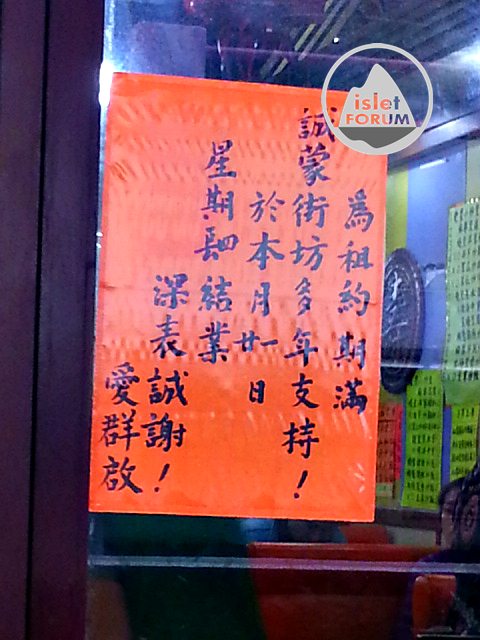 islet
FORUM
為租約期滿
誠蒙街坊多年支持！
於本月廿一日
星期䦉結業
深表誠謝！
愛群啟